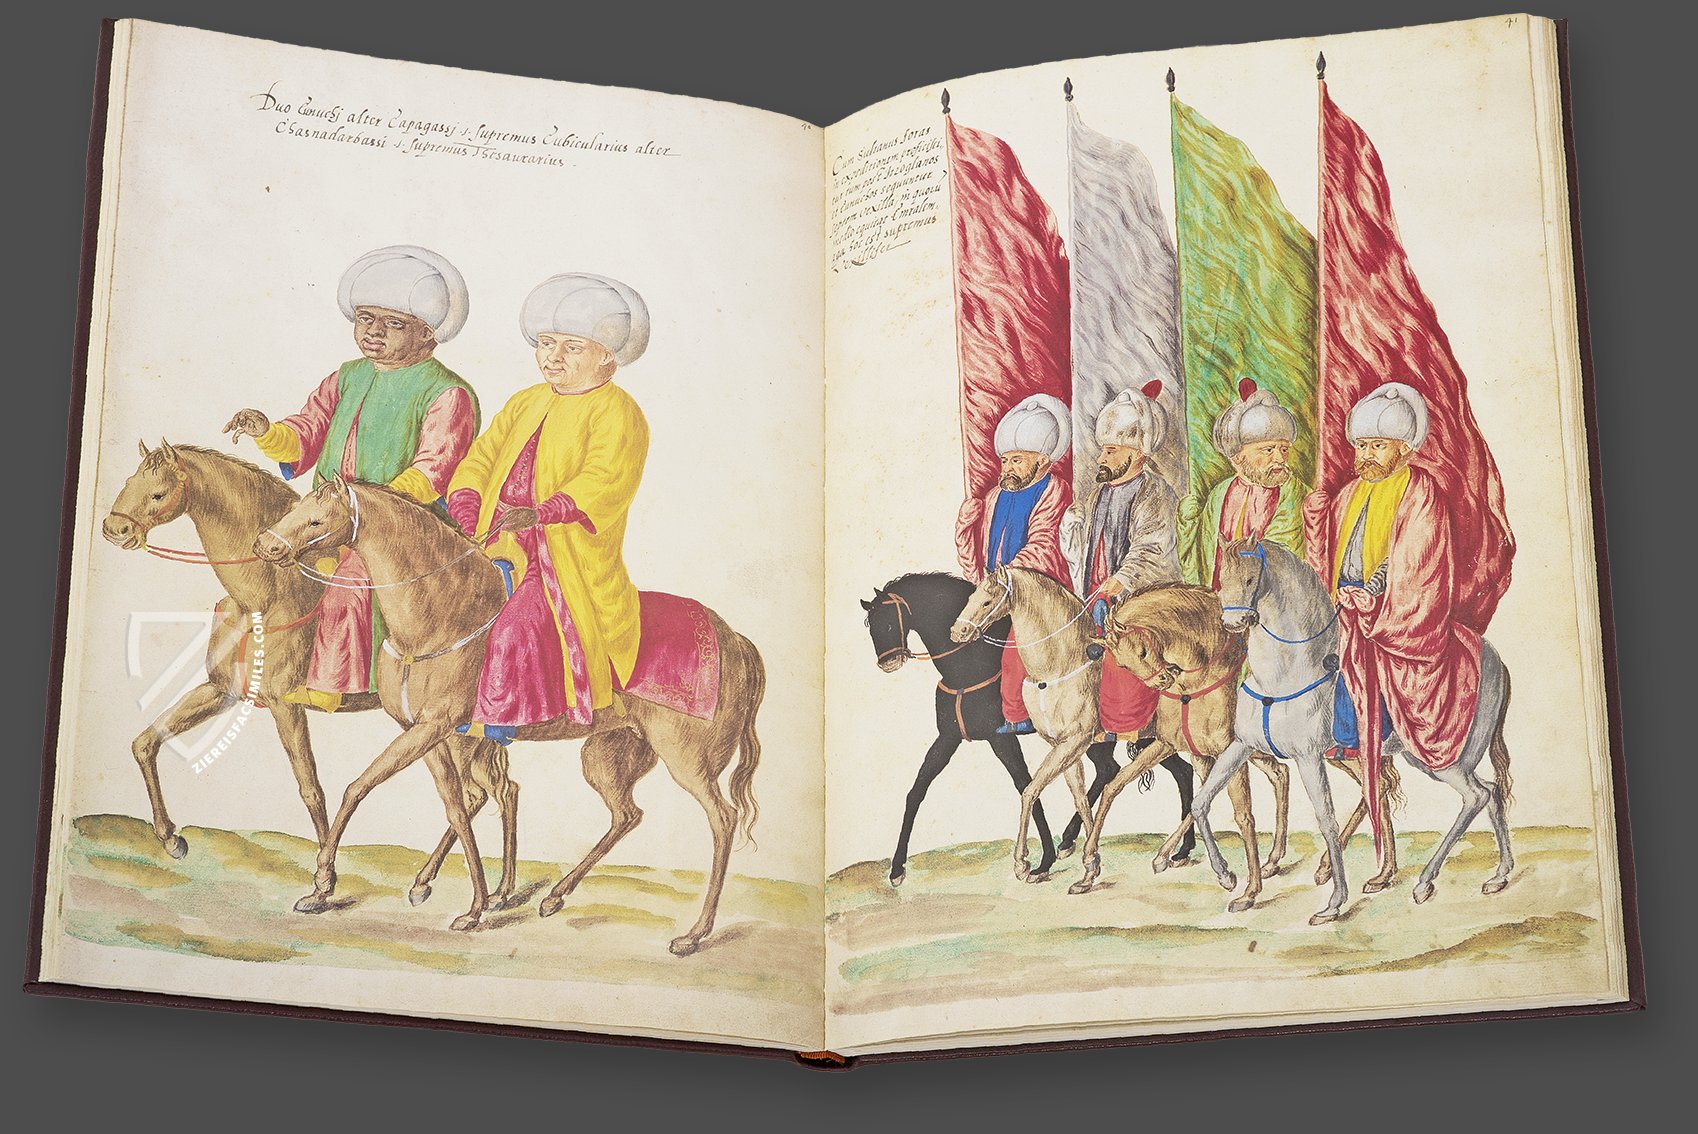 Duo Eunuchj alter Capagassj .i. supremus Cubicularius alter
Chasnadarbassi .i. supremus Thesaurarius.
40
41
Cum Sultanus foras
in expeditionem proficisci
tur tum post Itzoglanos
et Eunuchos sequuntur
septem vexilla, in quorū
medio equitat Emralem
aga hoc est supremus
Vexillifer
ZIEREISFACSIMILES.COM